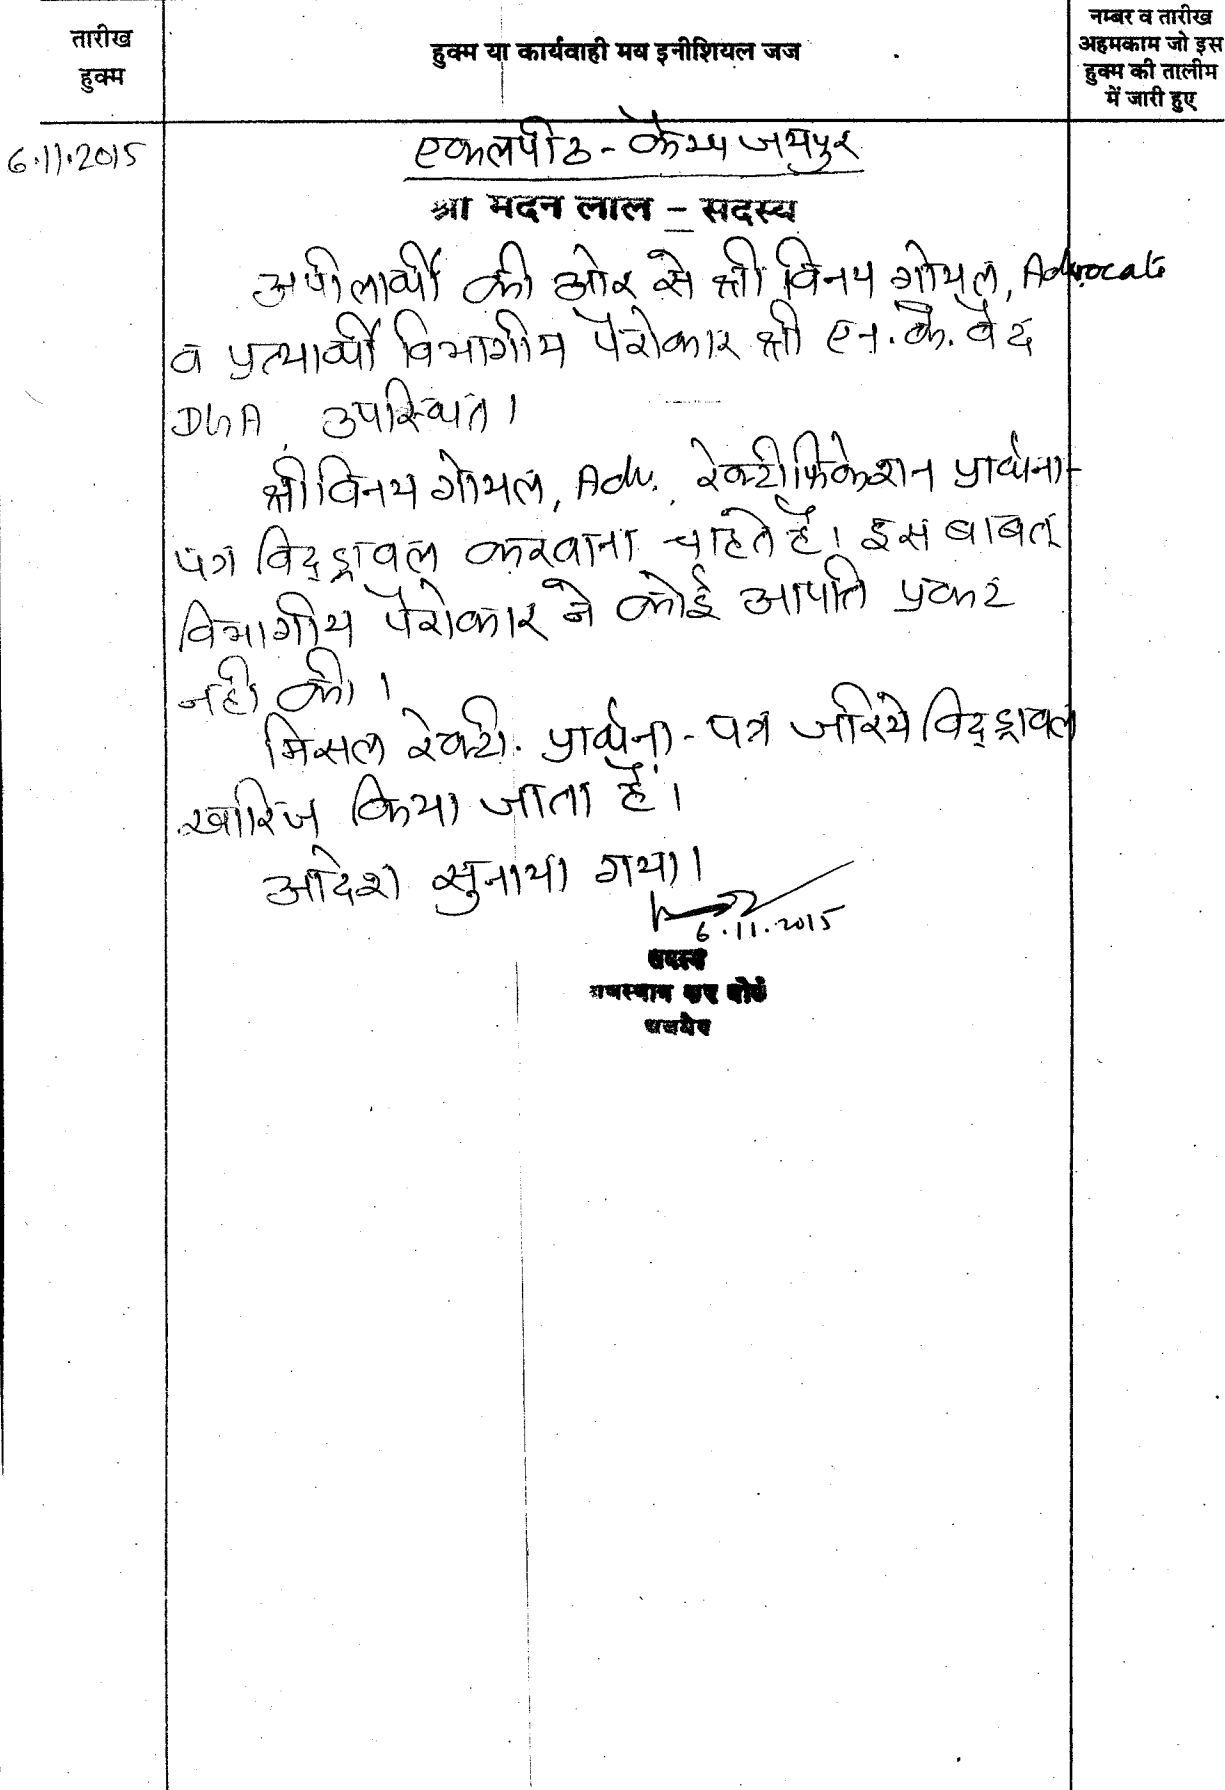 तारीख
हुक्म
हुक्म या कार्यवाही मय इनीशियल जज
नम्बर व तारीख
अहमकाम जो इस
हुक्म की तालीम
में जारी हुए
6.11.2015
एकलपीठ - कैम्प जयपुर
श्री मदन लाल - सदस्य
अपीलार्थी की ओर से श्री विनय गोयल, Advocate
व प्रत्यार्थी विभागीय पैरोकार श्री एन. के. वेद
DGA उपस्थित।
श्री विनय गोयल, Adv. रेक्टीफिकेशन प्रार्थना-
पत्र विद्ड्रावल करवाना चाहते हैं। इस बाबत्
विभागीय पैरोकार ने कोई आपति प्रकट
नही की।
मिसल रेक्टी. प्रार्थना-पत्र जरिये विद्ड्रावल
खारिज किया जाता है।
आदेश सुनाया गया।
6.11.2015
सदस्य
राजस्थान कर बोर्ड
अजमेर